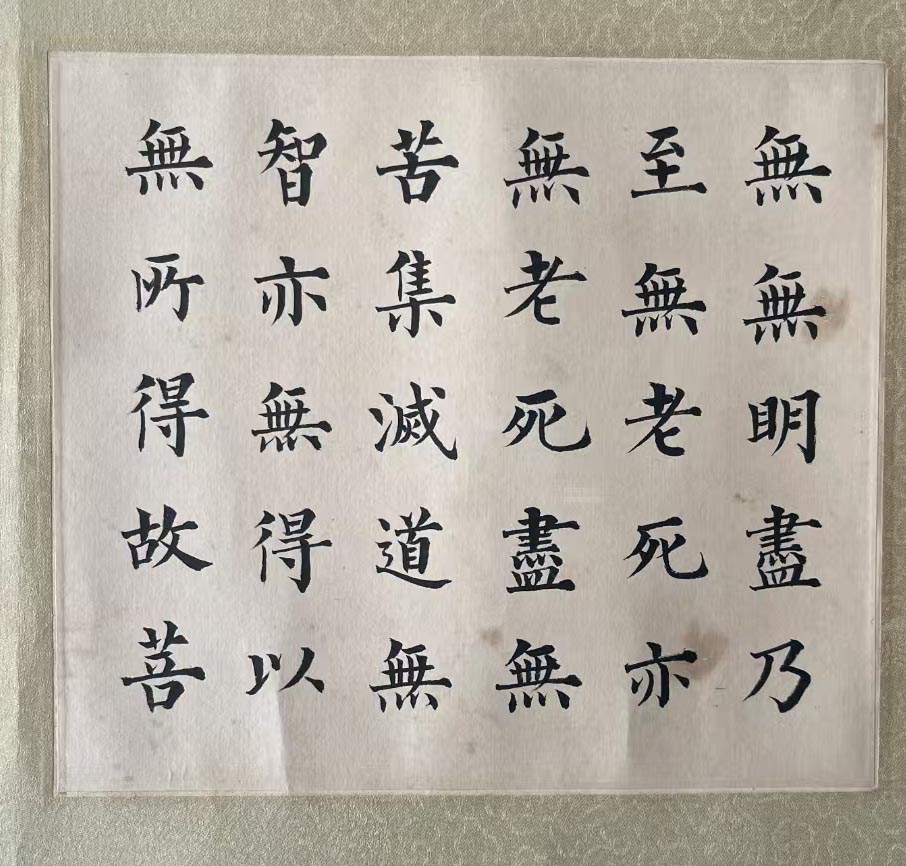 無無明盡乃
至無老死亦
無老死盡無
苦集滅道無
智亦無得以
無所得故菩